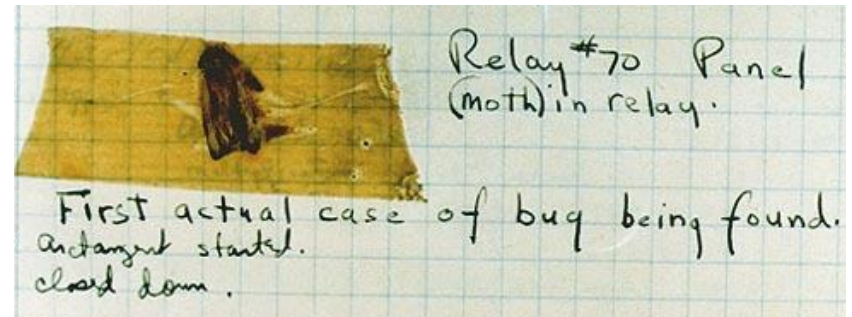 Relay #70 Panel
(moth) in relay.
First actual case of bug being found.
arctangent started.
closed down.